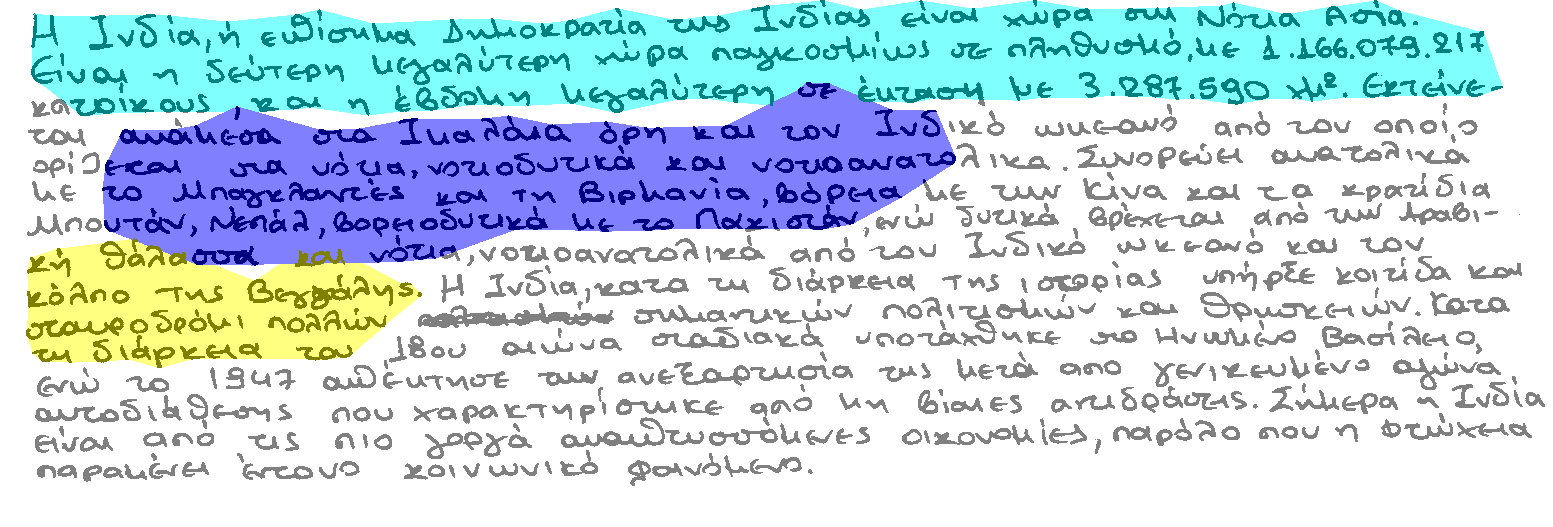 Η Ινδία, ή επίσημα Δημοκρατία της Ινδίας είναι χώρα στη Νότια Ασία.
Είναι η δεύτερη μεγαλύτερη χώρα παγκοσμίως σε πληθυσμό, με 1.166.079.217
κατοίκους, και η έβδομη μεγαλύτερη σε έκταση με 3.287.590 χμ². Εκτείνε-
ται ανάμεσα στα Ιμαλάια όρη και τον Ινδικό ωκεανό από τον οποίο
ορίζεται στα νότια, νοτιοδυτικά και νοτιοανατολικα. Συνορεύει ανατολικά
με το Μπαγκλαντές και τη Βιρμανία, βόρεια με την Κίνα και τα κρατίδια
Μπουτάν, Νεπάλ, βορειοδυτικά με το Πακιστάν, ενώ δυτικά βρέχεται από την Αραβι-
κή θάλασσα και νότια, νοτιοανατολικά από τον Ινδικό ωκεανό και τον
κόλπο της Βεγγάλης. Η Ινδία, κατα τη διάρκεια της ιστορίας υπήρξε κοιτίδα και
σταυροδρόμι πολλών σημαντικών πολιτισμών και θρησκειών. Κατα
τη διάρκεια του 18ου αιώνα σταδιακά υποτάχθηκε στο Ηνωμένο Βασίλειο,
ενώ το 1947 απέκτησε την ανεξαρτησία της μετά απο γενικευμένο αγώνα
αυτοδιάθεσης που χαρακτηρίστηκε από μη βίαιες αντιδράσεις. Σήμερα η Ινδία
είναι από τις πιο γοργά αναπτυσσόμενες οικονομίες, παρόλο που η φτώχεια
παραμένει έντονο κοινωνικό φαινόμενο.